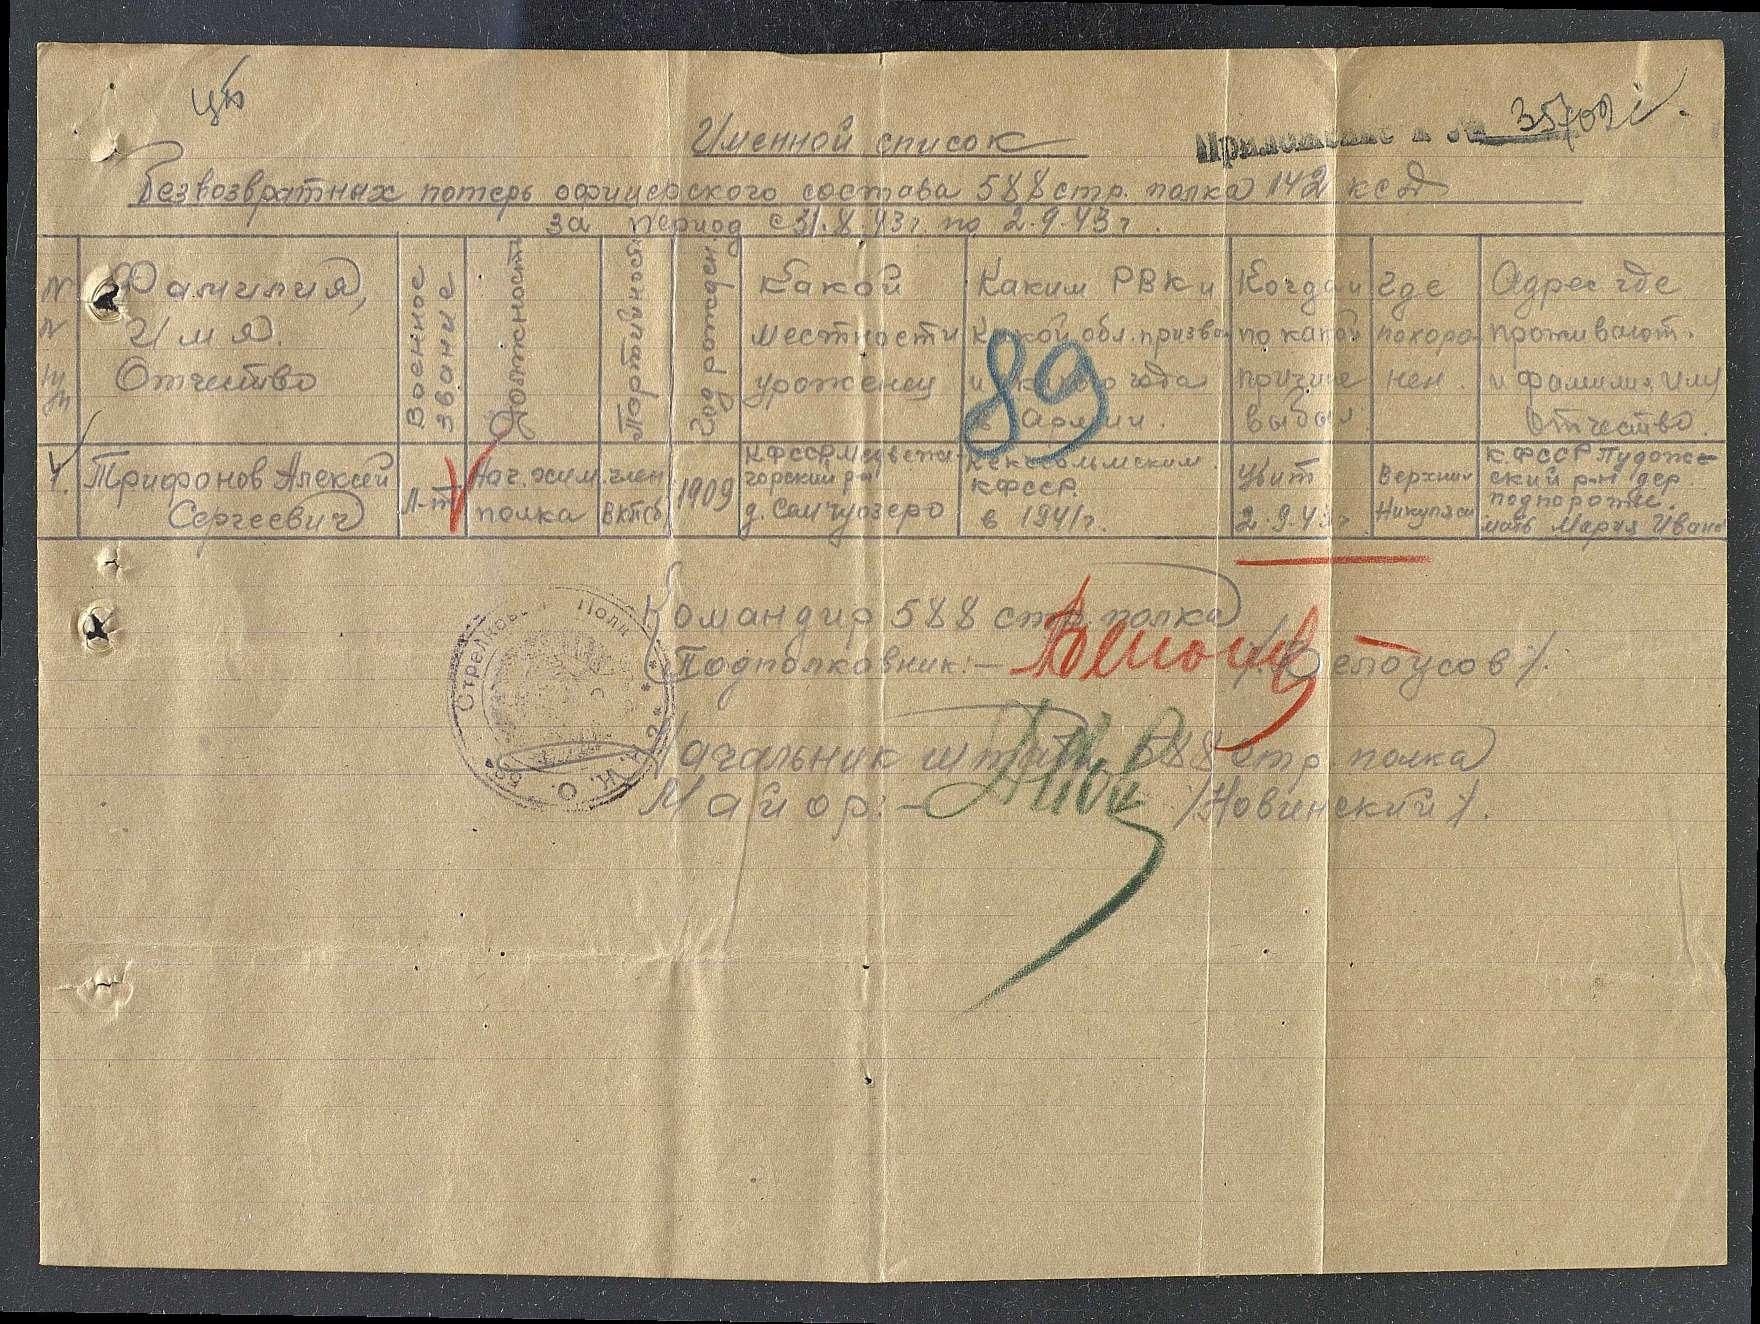 Приложение к № 35702с.
Именной список
Безвозвратных потерь офицерского состава 588 стр. полка 142 ксд
за период с 31.8.43г. по 2.9.43г.
№№ п/п
Фамилия, Имя. Отчество
Военное звание
Должность
Партийность
Год рожден.
Какой местности уроженец
Каким РВК и какой обл. призван и какого года в Армии.
Когда и по какой причине выбыл
Где похоронен.
Адрес где проживают. и фамилия, Имя Отчество.
1.
Трифонов Алексей
Сергеевич
Л-т
Нач. хим.
полка
член
ВКПб
1909
КФССР Медвежи-
горский р-н
д. Самчуозеро
Кексгольмским.
КФССР.
в 1941г.
Убит
2.9.43г
Верхняя
Никуляси
К.ФССР Пудож-
ский р-н дер.
Подпорожье.
мать Мария Иван
89
Командир 588 стр. полка
Подполковник:- /Белоусов/.
Начальник штаба 588 стр. полка
Майор:- /Новинский/.
Стрелковый Полк
Н.К.О.